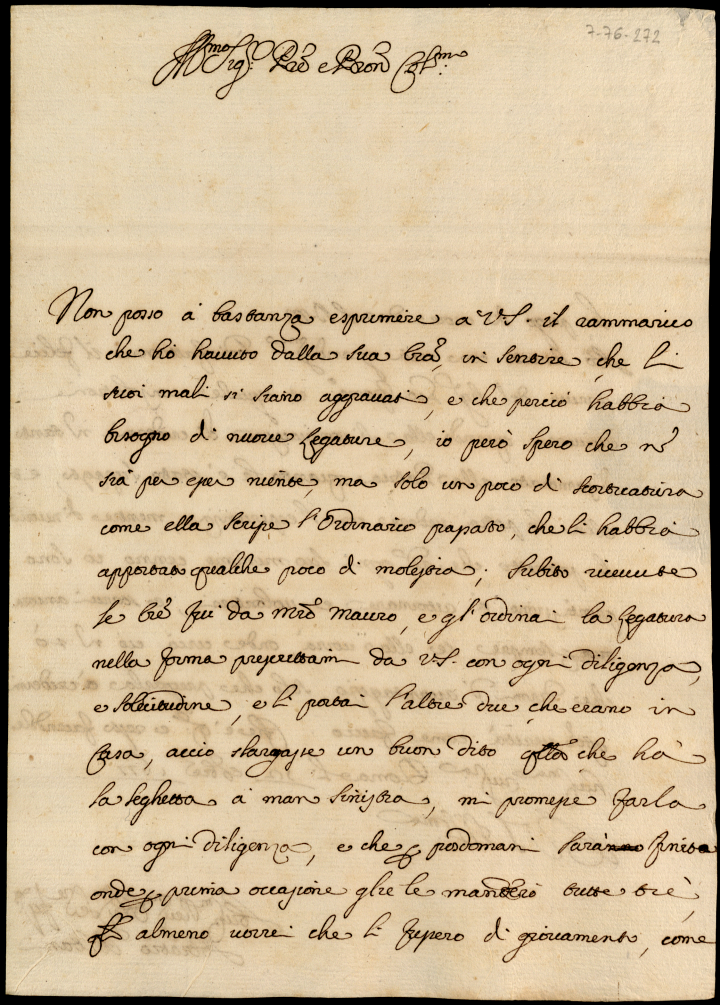 7-76-272
Ill.mo Sig.r Prõ e Pron Col.mo
Non posso à bastanza esprimere a VS. il rammarico
che hò hauuto dalla sua lrã, in sentire, che li
suoi mali si siano aggrauati, e che perciò habbia
bisogno di nuoue legature, io però spero che nõ
sia per esser niente, ma solo un poco di scorticatura
come ella scrisse l'Ordinario passato, che li habbia
apportato qualche poco di molestia; subito riceuute
le lrẽ fui da Mrõ Mauro, e gl'ordinai la legatura
nella forma prescrittami da VS. con ogni diligenza,
e sollecitudine, e li portai l'altre due, che erano in
Casa, acciò slargasse un buon dito qlla che hà
la seghetta à man sinistra, mi promesse farla
con ogni diligenza, e che posdomani sarà finita
onde prima occasione glie le manderò tutte trè,
almeno uorrei che li fussero di giouamento, come